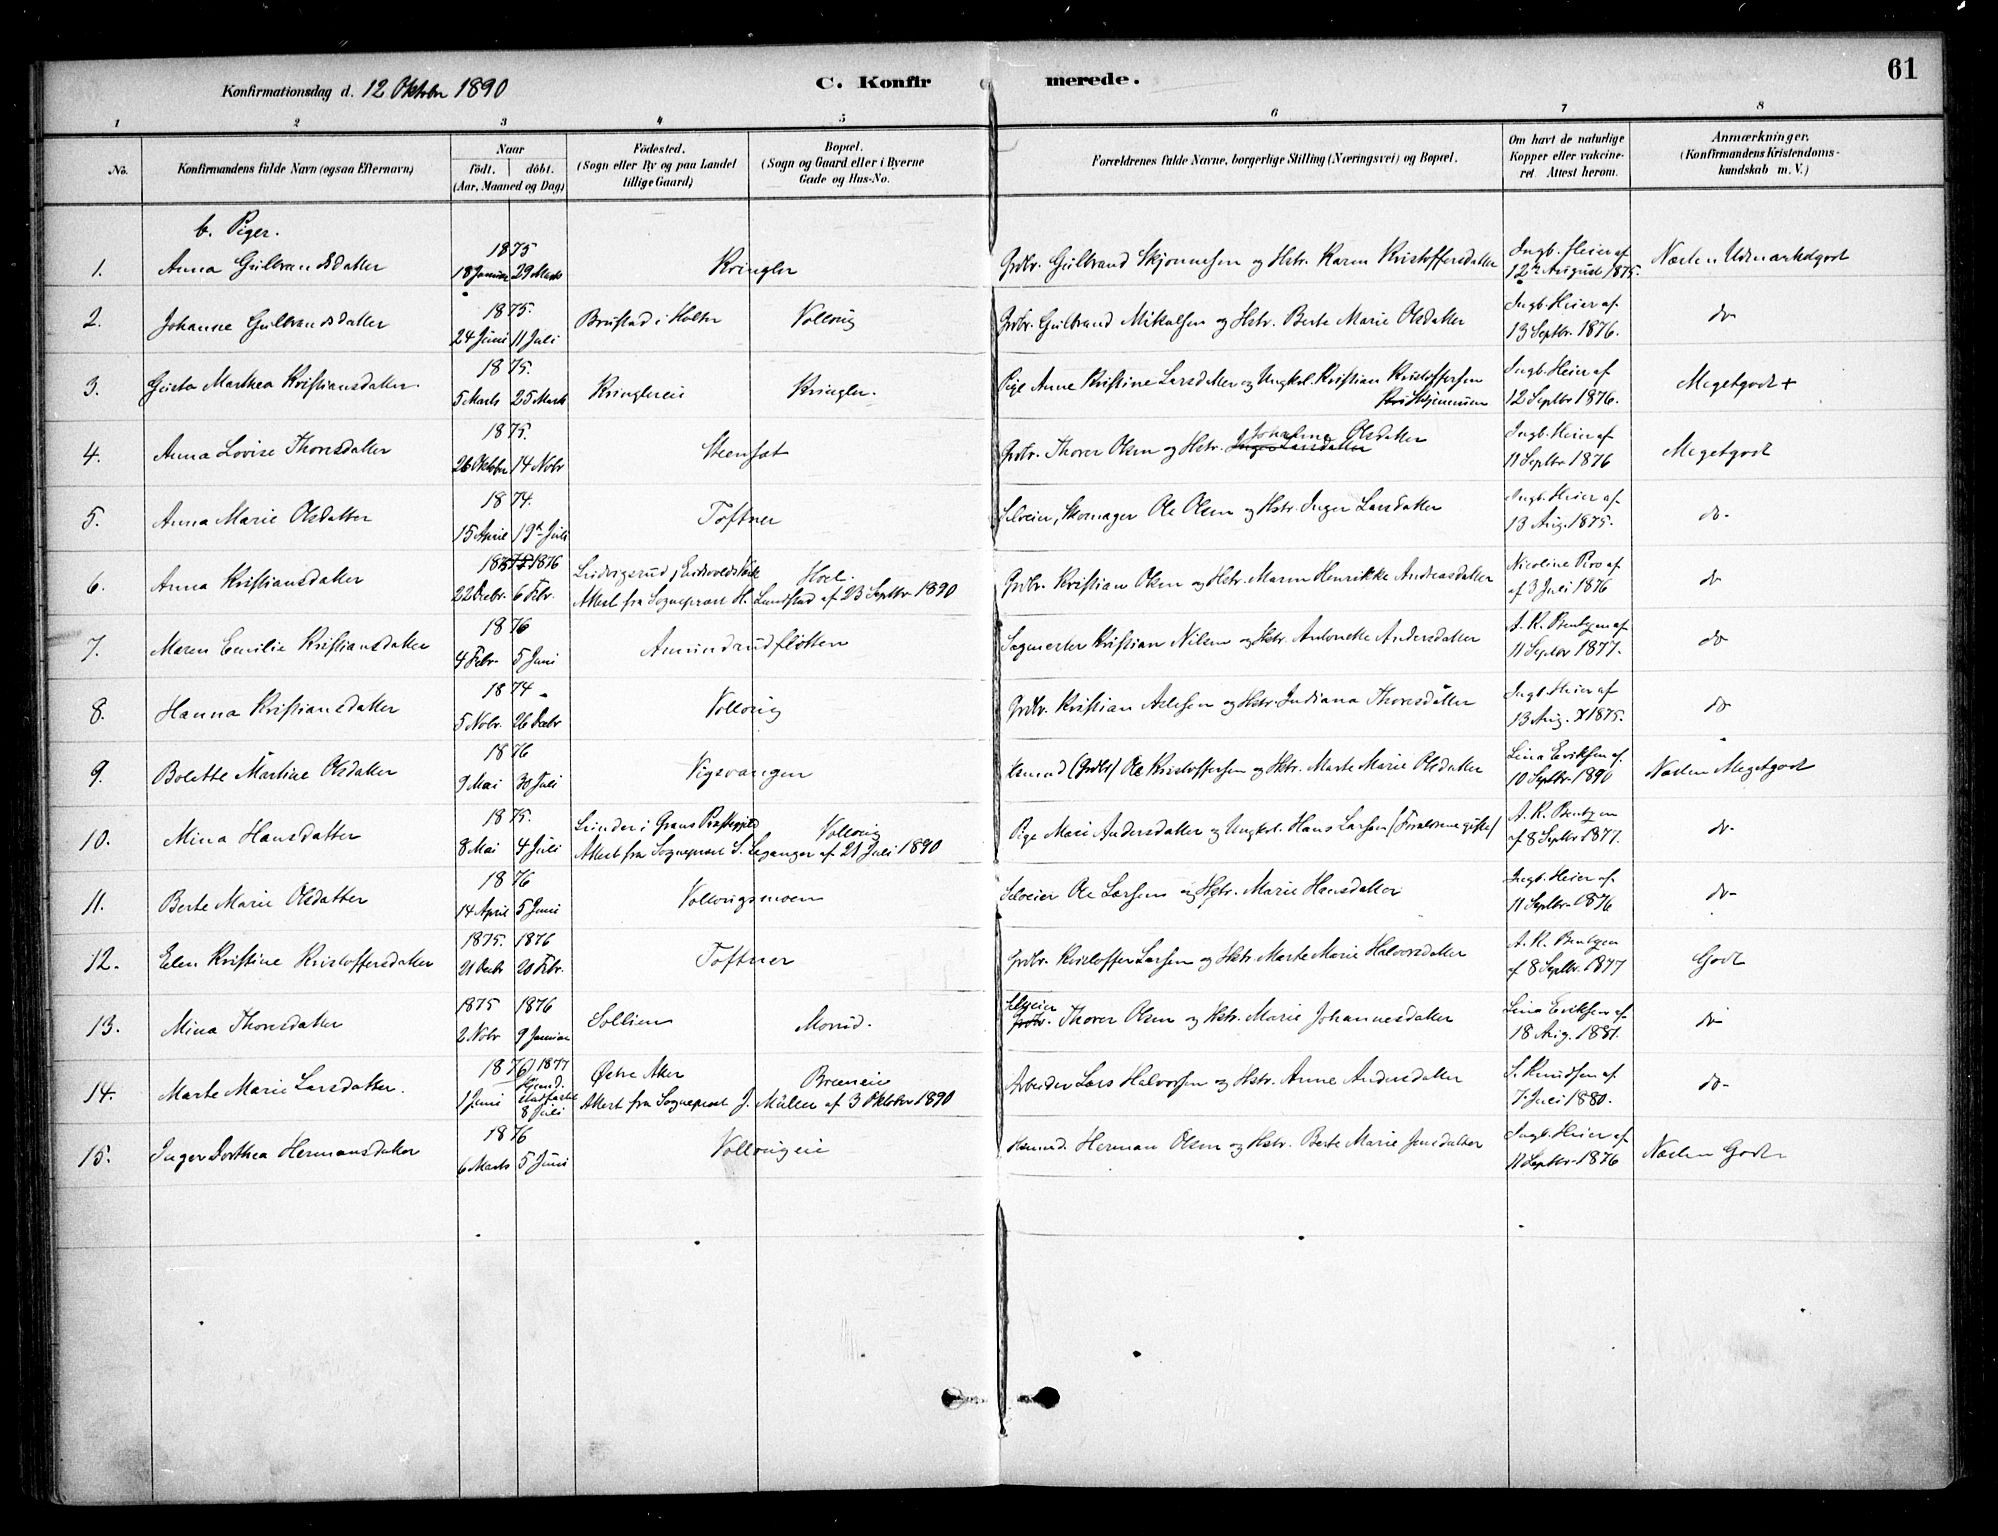 61
Konfirmationsdag d. 12 Oktober 1890 C. Konfirmerede.
1 2 3 4 5 6 7 8
No. Konfirmandens fulde Navn (ogsaa Efternavn) Naar född. döbt. (Aar, Maaned og Dag) Födested. (Sogn eller By og paa Landet tillige Gaard) Bopæl. (Sogn og Gaard eller i Byerne Gade og Hus-No. Forældrenes fulde Navne, borgerlige Stilling (Næringsvei) og Bopæl. Om havt de naturlige Kopper eller vakcineret. Attest herom. Anmærkninger. (Konfirmandens Kristendomskundskab m. V.)
b. Piger.
1. Anna Gulbrandsdatter 1875 18 Januar 29 Marts Kringler Grdbr. Gulbrand Skjønnesen og Hstr. Karen Kristoffersdatter Ingb. Heier af 12te August 1875. Næsten Udmærketgodt
2. Johanne Gulbrandsdatter 1875. 24 Juni 11 Juli Brustad i Holter Vollaug Grdbr. Gulbrand Mikalsen og Hstr. Berte Marie Olsdatter Ingb. Heier af 13 Septbr. 1876. do
3. Gusta Marthea Kristiansdatter 1875. 5 Marts 25 Marts Kringlereie Kringler. Pige Anne Kristine Larsdatter og Ungkl. Kristian Kristoffersen Skjennum Ingb. Heier af 12 Septbr 1876. Megetgodt +
4. Anna Lovise Thoresdatter 1875. 26 Oktober 14 Novbr Stensat Grdbr. Thorer Olsen og Hstr. Inger Larsdatter Johanna Olsdatter Ingb. Heier af 11 Septbr 1876 Megetgodt
5. Anna Marie Olsdatter 1874. 15 April 19de Juli Toftner Selveier, Skomager Ole Olsen og Hstr. Inger Larsdatter Ingb. Heier af 13 Aug. 1875. do
6. Anna Kristiansdatter 1875 1876 22 Decbr. 6 Febr. Ludvigsrud, Eidsvold Hoel. Grdbr. Kristian Olsen og Hstr. Maren Henrikke Andreasdatter Nicoline Roos af 3 Juli 1876 do
Attest fra Sogneprest H. Lundstad af 23 Septbr 1890
7. Maren Emilie Kristiansdatter 1876 4 Febr. 5 Juni Amundrudfløtten Sagmester Kristian Nilsen og Hstr. Antonette Andersdatter A. K. Bentzen af 11 Septbr 1877. do
8. Hanna Kristiansdatter 1874 5 Novbr. 26 Decbr Vollaug Grdbr. Kristian Axelsen og Hstr. Indiana Thoresdatter Ingb. Heier af 13 Aug. 1875. do
9. Bolette Martine Olsdatter 1876 9 Mai 30 Juli Vigsvangen Husmand (Grdbr) Ole Kristoffersen og Hstr. Marte Marie Olsdatter Lina Eriksen af 10 Septbr. 1890 Næsten Megetgodt
10. Mina Hansdatter 1875. 8 Mai 4 Juli Lunder i Grans Præstegjeld Vollaug Pige Mari Andersdatter og Ungkl. Hans Larsen (Forældrene gifte) A. K. Bentzen af 8 Septbr 1877. do
Attest fra Sogneprest S. Leganger af 21 Juli 1890
11. Berte Marie Olsdatter 1876 14 April 5 Juni Vollaugsmoen Selveier Ole Larsen og Hstr. Marie Hansdatter Ingb. Heier af 11 Septbr. 1876 do
12. Elen Kristine Kristoffersdatter 1875. 1876 21 Decbr 20 Febr. Toftner Grdbr. Kristoffer Larsen og Hstr. Marte Marie Halvorsdatter A. K. Bentzen af 8 Septbr. 1877 Godt
13. Mina Thoresdatter 1875 1876 2 Novbr 9 Januar Sollien Morud. Selveier Grdbr. Thorer Olsen og Hstr. Marie Johannesdatter Lina Eriksen af 18 Aug. 1881. do
14. Marte Marie Larsdatter. 1876 1877 1 Juni Hjemd. stadfæstet 8 Juli Østre Aker Breeneie Arbeider Lars Halvorsen og Hstr. Anne Andersdatter S. Knudsen af 7. Juli 1880. do
Attest fra Sogneprest J. Müller af 3 Oktober 1890
15. Inger Dorthea Hermansdatter 1876 6 Marts 5 Juni Vollaugeie Husmd. Herman Olsen og Hstr. Berte Marie Jensdatter Ingb. Heier af 11 Septbr. 1876 Næsten Godt